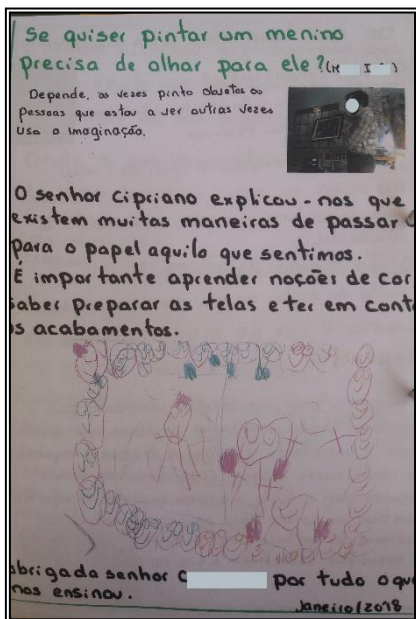 Se quiser pintar um menino
precisa de olhar para ele?
Depende, as vezes pinto objetos ou
pessoas que estou a ver outras vezes
uso a imaginação.
O senhor Cipriano explicou-nos que
existem muitas maneiras de passar
para o papel aquilo que sentimos.
É importante aprender noções de cor
saber preparar as telas e ter em cont
s acabamentos.
obrigada senhor C por tudo o qu
nos ensinou.
Janeiro/2018